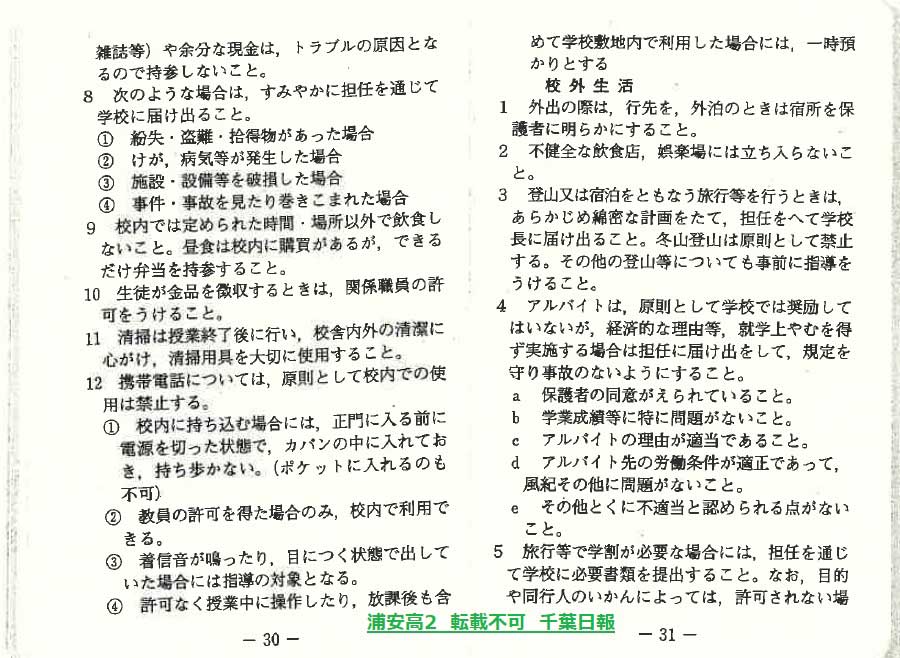 雑誌等)や余分な現金は,トラブルの原因とな
るので持参しないこと。
8 次のような場合は,すみやかに担任を通じて
学校に届け出ること。
① 紛失・盗難・拾得物があった場合
② けが,病気等が発生した場合
③ 施設・設備等を破損した場合
④ 事件・事故を見たり巻きこまれた場合
9 校内では定められた時間・場所以外で飲食し
ないこと。昼食は校内に購買があるが,できる
だけ弁当を持参すること。
10 生徒が金品を徴収するときは,関係職員の許
可をうけること。
11 清掃は授業終了後に行い,校舎内外の清潔に
心がけ,清掃用具を大切に使用すること。
12 携帯電話については,原則として校内での使
用は禁止する。
① 校内に持ち込む場合には,正門に入る前に
電源を切った状態で,カバンの中に入れてお
き,持ち歩かない。(ポケットに入れるのも
不可)
② 教員の許可を得た場合のみ,校内で利用で
きる。
③ 着信音が鳴ったり,目につく状態で出して
いた場合には指導の対象となる。
④ 許可なく授業中に操作したり,放課後も含
― 30 ―
めて学校敷地内で利用した場合には,一時預
かりとする
校外生活
1 外出の際は,行先を,外泊のときは宿所を保
護者に明らかにすること。
2 不健全な飲食店,娯楽場には立ち入らないこ
と。
3 登山又は宿泊をともなう旅行等を行うときは,
あらかじめ綿密な計画をたて,担任をへて学校
長に届け出ること。冬山登山は原則として禁止
する。その他の登山等についても事前に指導を
うけること。
4 アルバイトは,原則として学校では奨励して
はいないが,経済的な理由等,就学上やむを得
ず実施する場合は担任に届け出をして,規定を
守り事故のないようにすること。
a 保護者の同意がえられていること。
b 学業成績等に特に問題がないこと。
c アルバイトの理由が適当であること。
d アルバイト先の労働条件が適正であって,
風紀その他に問題がないこと。
e その他とくに不適当と認められる点がない
こと。
5 旅行等で学割が必要な場合には,担任を通じ
て学校に必要書類を提出すること。なお,目的
や同行人のいかんによっては,許可されない場
― 31 ―
浦安高2 転載不可 千葉日報